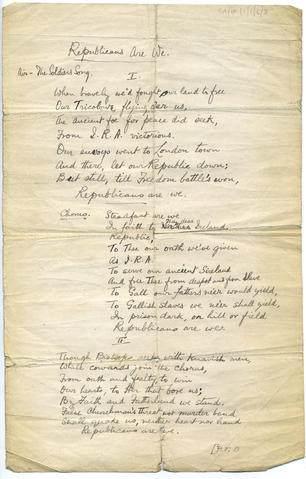 Republicans Are We.
Air - The Soldiers Song.
I.
When bravely we'd fought our land to free
Our Tricolour flying o'er us,
The ancient foe for peace did seek,
From I.R.A. victorious.
Our envoys went to London town
And there, let our Republic down;
But still, till Freedom battle's won,
Republicans are we.
Chorus. Steadfast are we
In faith to Ireland,
Republic,
To Thee our oath we've given
As I.R.A.
To serve our ancient Sireland
And free Thee from despot and from slave
To Gall our fathers ne'er would yield,
To Gallish slaves we ne'er shall yield,
In prison dark, on hill or field
Republicans are we.
II
Though Bishops with Knavish men,
While cowards join the chorus,
From oath and fealty, to win
Our hearts, to that bore us;
By Faith and Fatherland we stand,
False Churchman's threat nor murder band
Shall quake us, neither heart nor hand
Republicans are we.